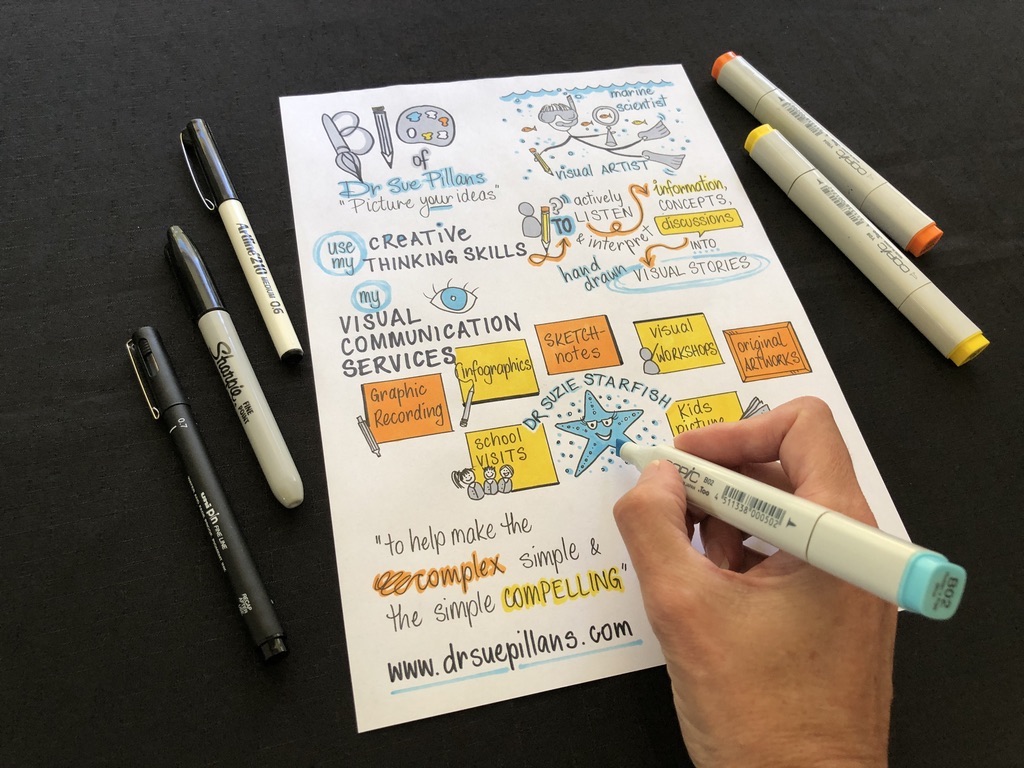 BIO
of
Dr Sue Pillans
"Picture your ideas"
marine
scientist
visual ARTIST
use
my
CREATIVE
THINKING SKILLS
TO
actively
LISTEN
& interpret
information,
CONCEPTS,
discussions
INTO
hand
drawn
VISUAL STORIES
my
VISUAL
COMMUNICATION
SERVICES
Graphic
Recording
infographics
SKETCH-
notes
visual
WORKSHOPS
original
ARTWORKS
school
VISITS
DR SUZIE STARFISH
Kids
picture
"to help make the
complex simple &
the simple COMPELLING"
www.drsuepillans.com
Artline 210 MEDIUM 0.6
Sharpie
FINE
POINT
0.7
uni pin FINE LINE
copic
copic
copic B02
.Too
4511338000502
B02